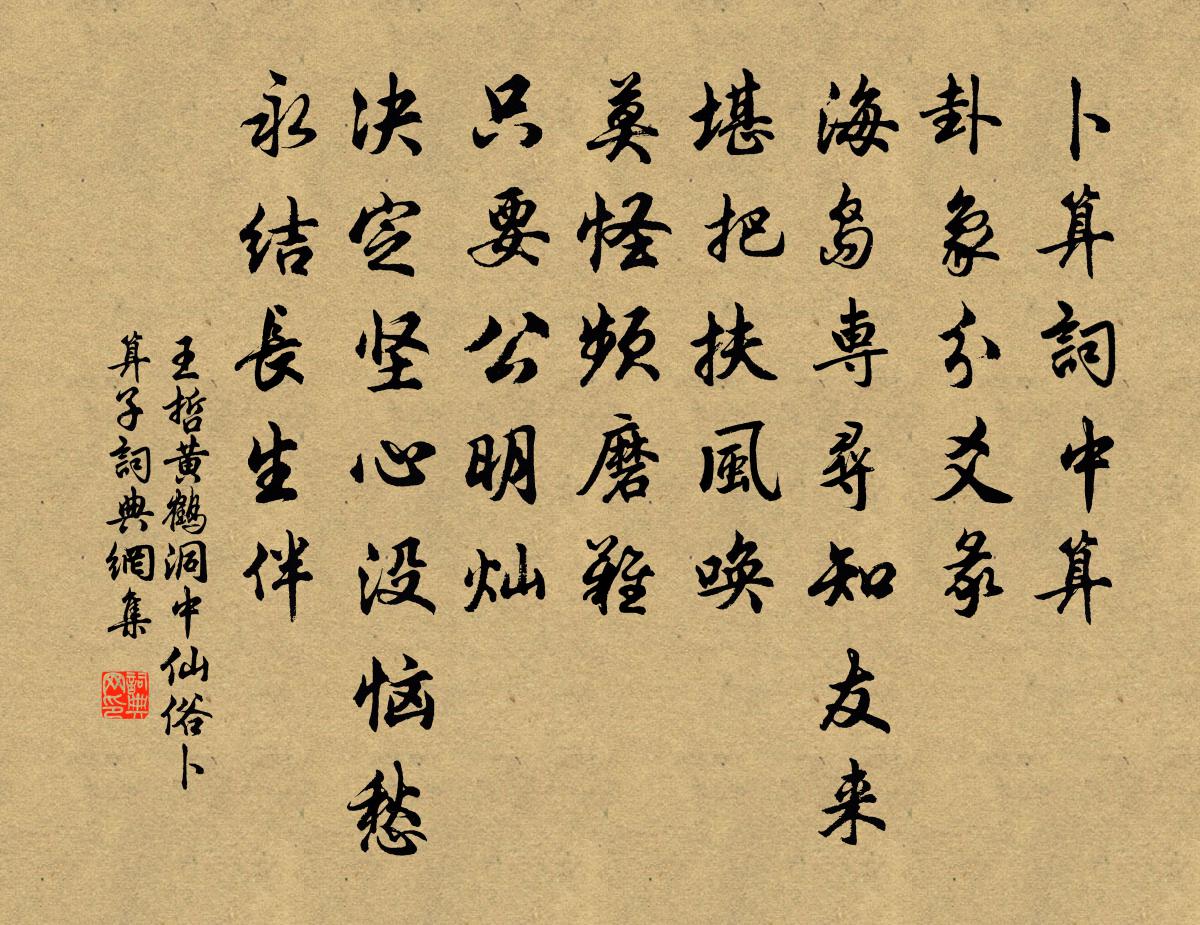 卜算詞中算
卦象分爻彖
海島專尋知友来
堪把扶風唤
莫怪频磨難
只要公明灿
决定坚心没恼愁
永结長生伴
王哲黄鶴洞中仙俗卜
算子詞典網集
詞典
网印